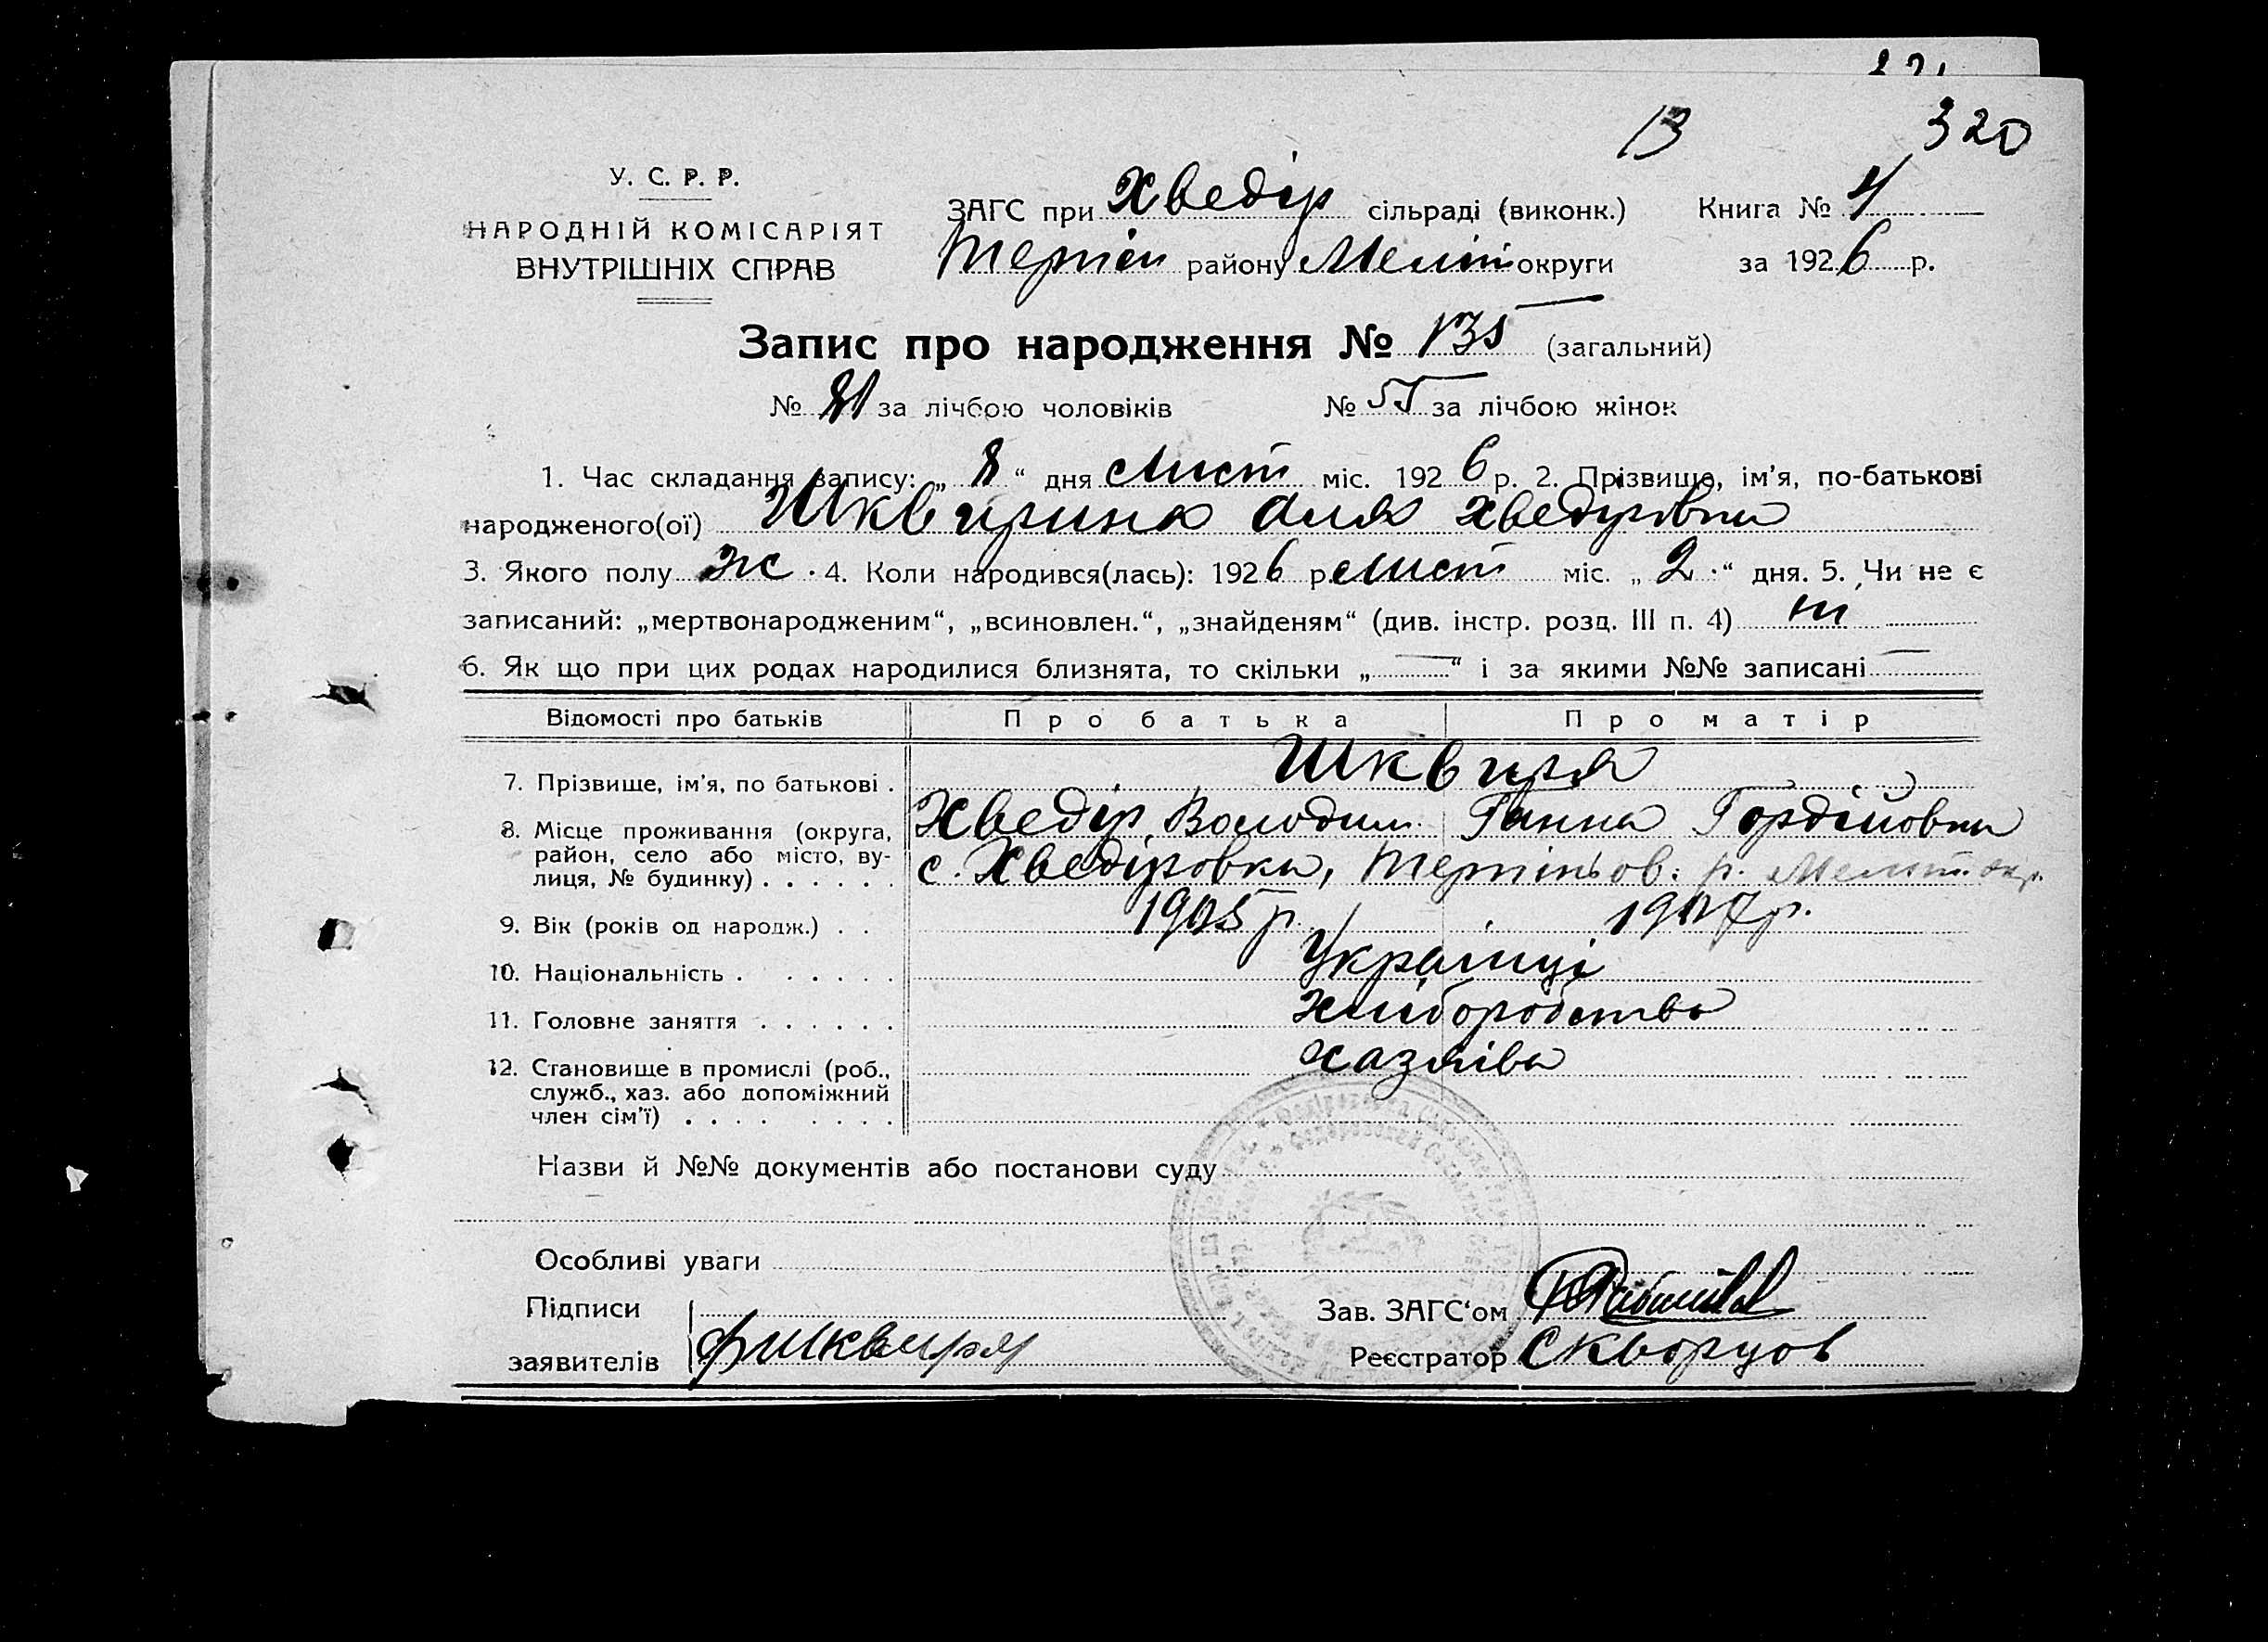 13 320
У. С. Р. Р.
НАРОДНІЙ КОМІСАРІЯТ
ВНУТРІШНІХ СПРАВ
ЗАГС при Хведір сільраді (виконк.) Книга № 4
району Меліт округи за 1926 р.
Запис про народження № 135 (загальний)
№ 81 за лічбою чоловіків № 55 за лічбою жінок
1. Час складання запису: „ 8 “ дня Лист міс. 1926 р. 2. Прізвище, ім'я, по-батькові
народженого(ої) Хведирівна
3. Якого полу ж. 4. Коли народився(лась): 1926 р. Лист міс. „ 2 “ дня. 5. Чи не є
записаний: „мертвонародженим“, „всиновлен.“, „знайденям“ (див. інстр. розд. III п. 4) ні
6. Як що при цих родах народилися близнята, то скільки „ — “ і за якими №№ записані —
Відомості про батьків Про батька Про матір
7. Прізвище, ім'я, по батькові . Шквиря
Хведір Володим. Ганна Гордійовна
8. Місце проживання (округа,
район, село або місто, ву-
лиця, № будинку) . . . . . . с. Хведіровка, р. Меліт. окр.
9. Вік (років од народж.) . . 1905 р. 1907 р.
10. Національність . . . . . . Українці
11. Головне заняття . . . . . . Хліборобство
12. Становище в промислі (роб.,
служб., хаз. або допоміжний
член сім'ї) . . . . . . . . Хазяїва
Назви й №№ документів або постанови суду
Особливі уваги
Підписи
Зав. ЗАГС'ом
заявителів Фшквиря
Реєстратор Скворцов